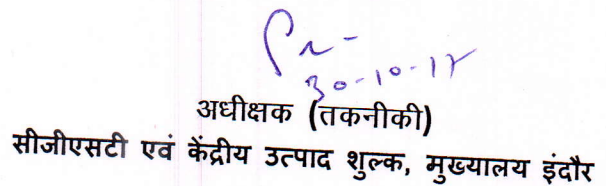 30-10-17
अधीक्षक (तकनीकी)
सीजीएसटी एवं केंद्रीय उत्पाद शुल्क, मुख्यालय इंदौर